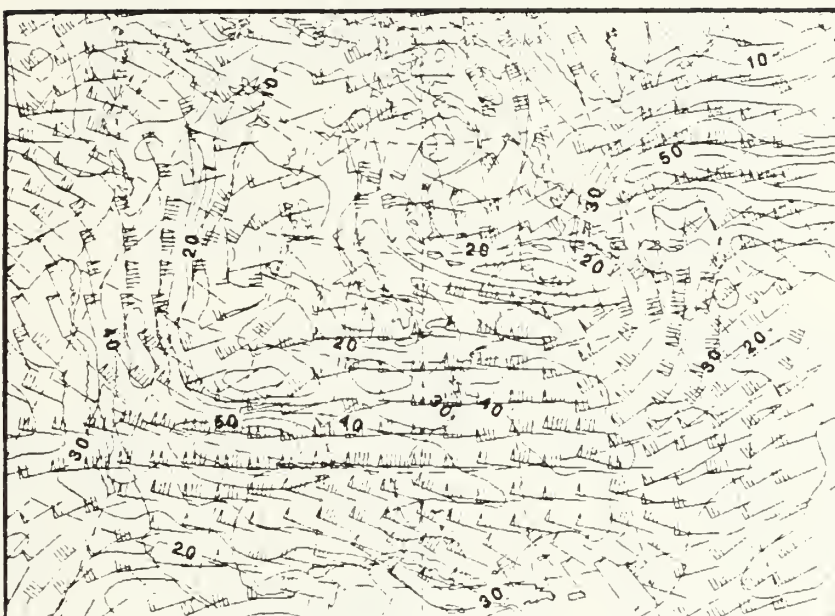 10
10
50
30
20
20
20
40
20
30
20
30
40
50
40
30
20
30